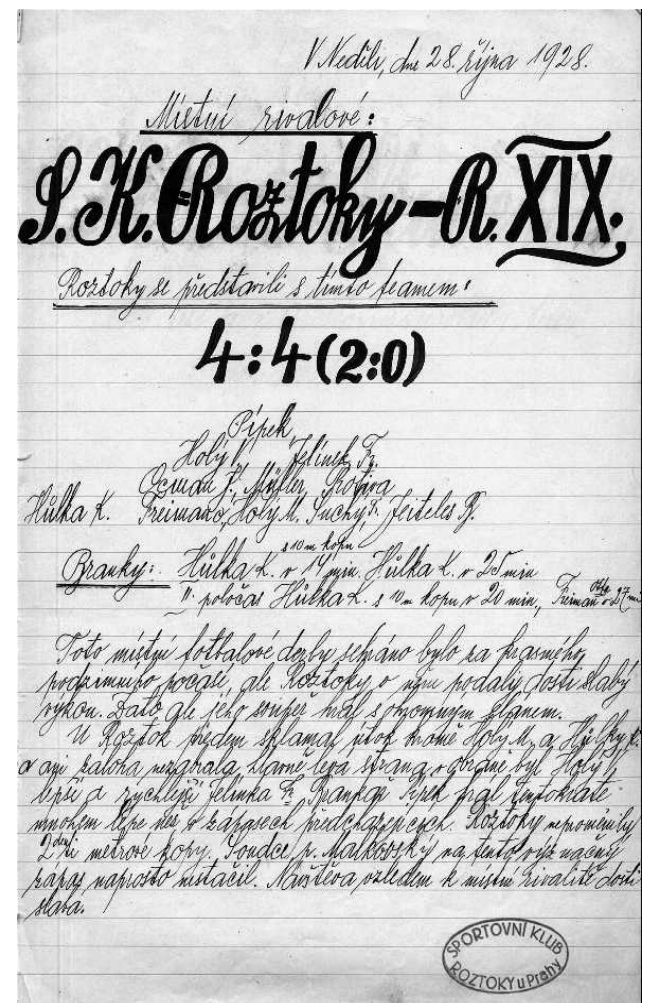 V Neděli, dne 28. října 1928.
Místní rivalové:
S.K. Roztoky - R. XIX.
Roztoky se představili s tímto teamem:
4:4 (2:0)
Pípek
Holý V. Jelínek Fr.
Ocman J., Müller, Kotiva
Hůlka K. Freimann, Holý M. Suchý Fr. Jeiteles R.
Branky: Hůlka K. s 10 m kopu v 14 min. Hůlka K. v 25 min
II. poločas Hůlka K. s 10 m kopu v 20 min., Freiman v 27 min
Toto místní fotbalové derby sehráno bylo za krasneho
podzimního počasí, ale Roztoky v něm podaly dosti slabý
výkon. Zato ale jeho soupeř hrál s ohromným elanem.
U Roztok předem sklamal útok kromě Holý M. a Hůlky K.
a ani zaloha nezabrala hlavně levá strana v obraně byl Holý V.
lepší a rychlejší Jelínka Fr. Brankař Pípek hrál tentokráte
mnohem lépe než v zápasech předcházejících. Roztoky neproměnily
2 metrové kopy. Soudce p. Malkovský na tento význačný
zápas naprosto nestačil. Návštěva vzledem k místní rivalitě dosti
slabá.
SPORTOVNÍ KLUB
ROZTOKY u Prahy